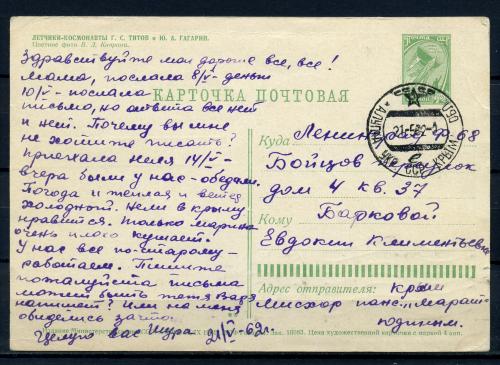 ЛЕТЧИКИ-КОСМОНАВТЫ Г. С. ТИТОВ и Ю. А. ГАГАРИН.
Цветное фото В. Д.
Здравствуйте мои дорогие все, все!
Мама, послала 8/V- деньги
10/V- послала
письмо, но ответа все нет
и нет. Почему вы мне
не хотите писать?
Приехала Неля 14/V-
вчера были у нас- обедали.
Погода и теплая и ветер
холодный. Нели в Крыму
нравится. Только Марина
очень плохо кушает.
У нас все по-старому-
работаем. Пишите
пожалуйста письма
может быть тетя Валя
напишет? Или на меня
обиделись за что.
Целую вас Шура 21/V-62г.
КАРТОЧКА ПОЧТОВАЯ
АЛУПКА КРЫМ. ОБЛ.
21-5 62
Куда Ленинград Ф-68
Бойцов переулок
дом 4 кв. 37
Кому Барковой
Евдокии Климентьевне
Адрес отправителя: Крым
Мисхор панс. „Марат"
Юдиным.
Издание Министерства связи СССР. Цена художественной карточки с маркой 4 коп.